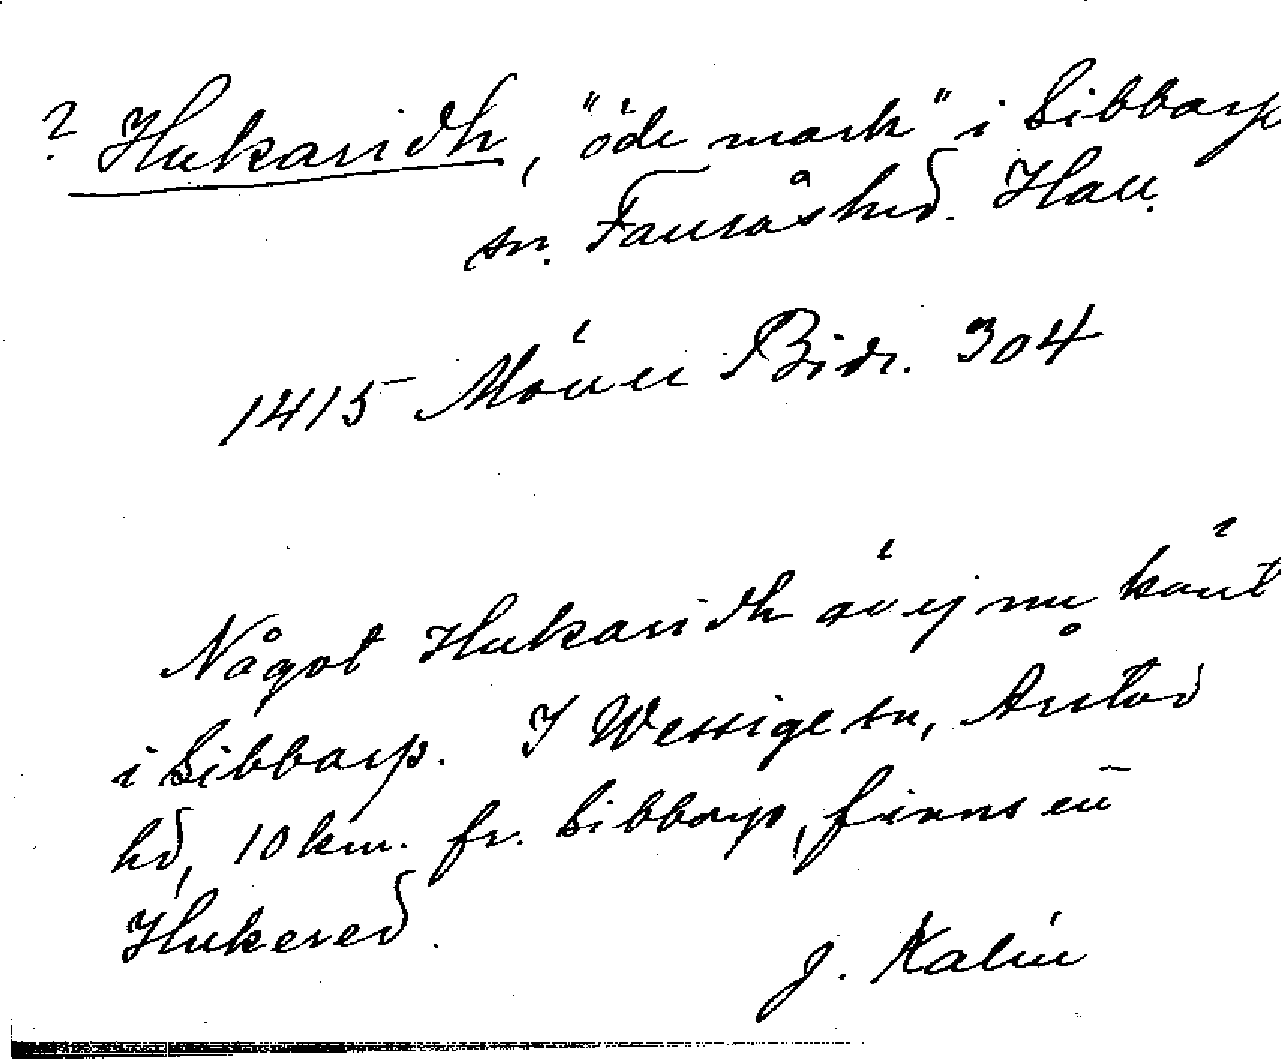 ? Hukaridh, "öde mark" i Sibbarp
sn. Fauråshd. Hall.
1415 Möller Bidr. 304
Något Hukaridh är ej nu känt
i Sibbarp. I Wessige sn, Årstad
hd, 10 km. fr. Sibbarp, finns ett
Hukered.
J. Kalén